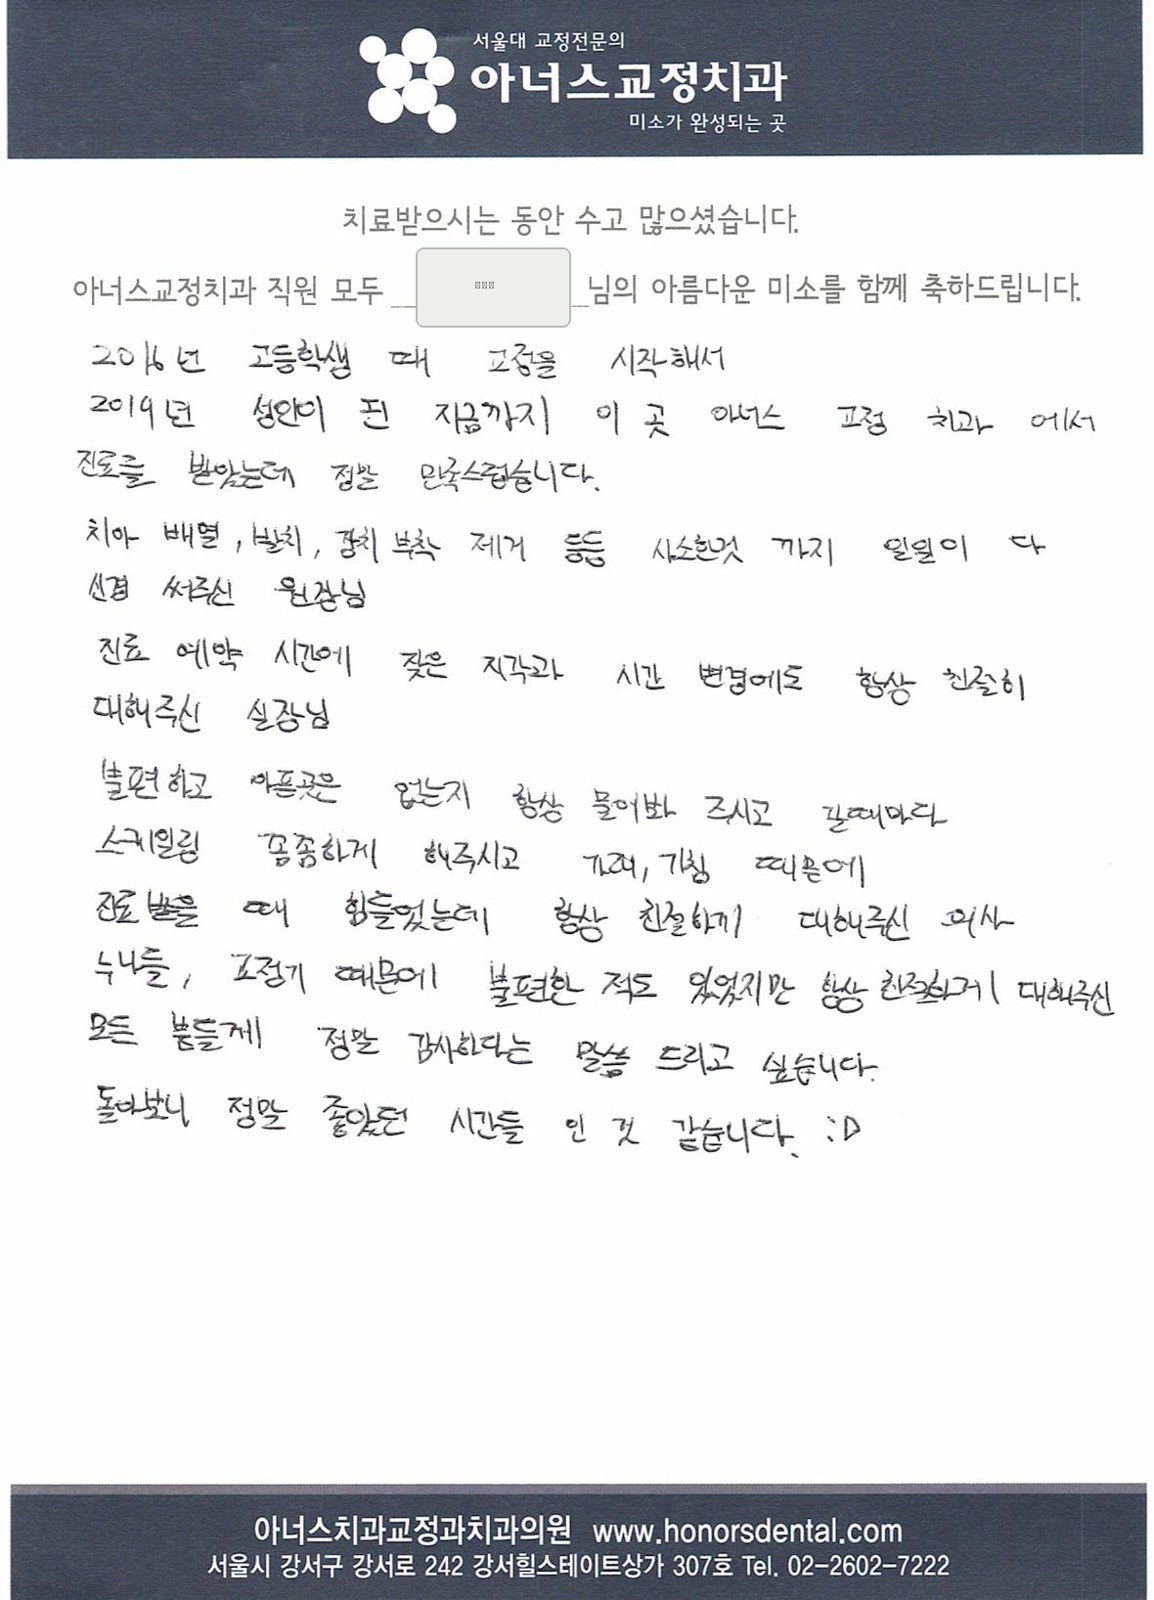 서울대 교정전문의
아너스교정치과
미소가 완성되는 곳
치료받으시는 동안 수고 많으셨습니다.
아너스교정치과 직원 모두 님의 아름다운 미소를 함께 축하드립니다.
2016년 고등학생 때 교정을 시작해서
2019년 성인이 된 지금까지 이 곳 아너스 교정 치과 에서
진료를 받았는데 정말 만족스럽습니다.
치아 배열, 발치, 장치 부착 제거 등등 사소한것 까지 일일이 다
신경 써주신 원장님
진료 예약 시간에 잦은 지각과 시간 변경에도 항상 친절히
대해주신 실장님
불편하고 아픈곳은 없는지 항상 물어봐 주시고 갈때마다
스케일링 꼼꼼하게 해주시고 가래, 기침 때문에
진료 받을 때 힘들었는데 항상 친절하게 대해주신 의사
누나들, 교정기 때문에 불편한 적도 있었지만 항상 친절하게 대해주신
모든 분들게 정말 감사하다는 말씀 드리고 싶습니다.
돌아보니 정말 좋았던 시간들 인 것 같습니다. :D
아너스치과교정과치과의원 www.honorsdental.com
서울시 강서구 강서로 242 강서힐스테이트상가 307호 Tel. 02-2602-7222